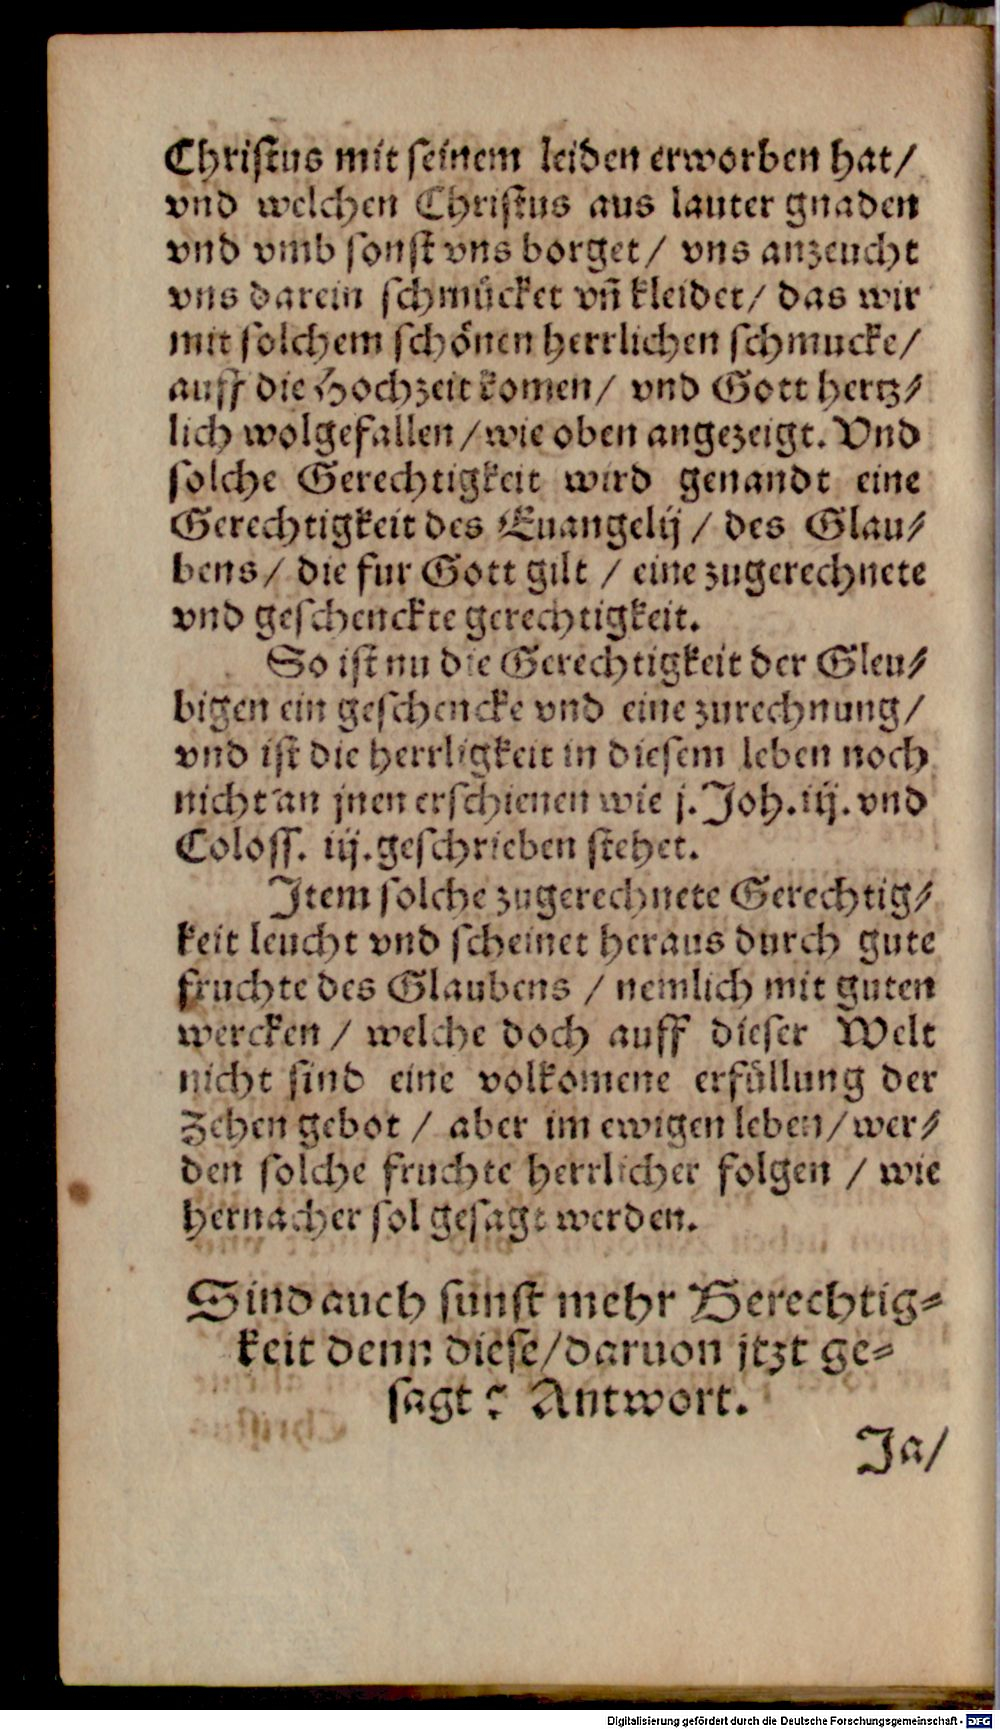 Christus mit seinem leiden erworben hat/
vnd welchen Christus aus lauter gnaden
vnd vmb sonst vns borget/ vns anzeucht
vns darein schmücket vñ kleidet/ das wir
mit solchem schönen herrlichen schmucke/
auff die Hochzeit komen/ vnd Gott hertz⸗
lich wolgefallen/wie oben angezeigt. Vnd
solche Gerechtigkeit wird genandt eine
Gerechtigkeit des Euangelij/ des Glau⸗
bens/ die fur Gott gilt / eine zugerechnete
vnd geschenckte gerechtigkeit.
So ist nu die Gerechtigkeit der Gleu⸗
bigen ein geschencke vnd eine zurechnung/
vnd ist die herrligkeit in diesem leben noch
nicht an jnen erschienen wie j. Joh. iij. vnd
Coloss. iij. geschrieben stehet.
Item solche zugerechnete Gerechtig⸗
keit leucht vnd scheinet heraus durch gute
fruchte des Glaubens / nemlich mit guten
wercken / welche doch auff dieser Welt
nicht sind eine volkomene erfüllung der
Zehen gebot / aber im ewigen leben/wer⸗
den solche fruchte herrlicher folgen / wie
hernacher sol gesagt werden.
Sind auch sunst mehr Gerechtig⸗
keit denn diese/daruon jtzt ge⸗
sagt? Antwort.
Ja/
Digitalisierung gefördert durch die Deutsche Forschungsgemeinschaft - DFG